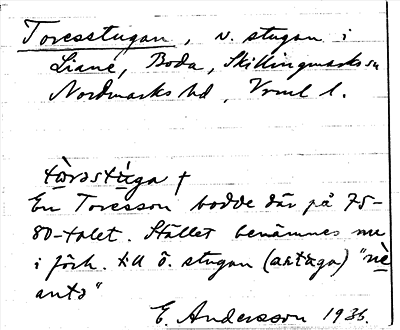 Toresstugan, n. stugan i
Liane, Boda, Skillingmarks sn
Nordmarks hd, Vrml l.
tòrəstùga †
En Toresson bodde där på 75-
80-talet. Stället benämnes nu
i förh. till ö. stugan (astùga) "nè
antə"
E. Andersson 1936.